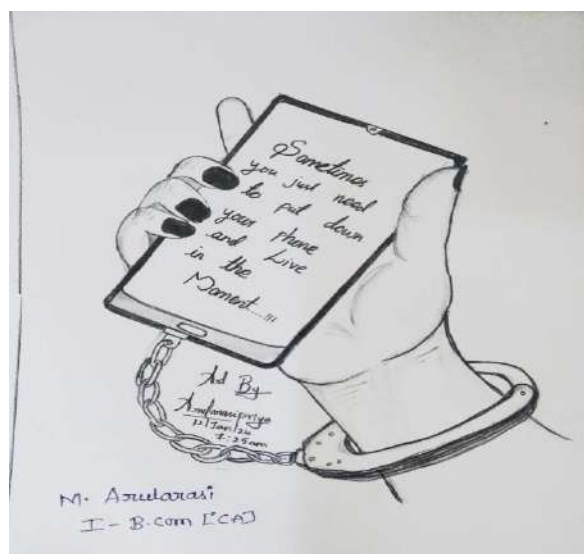 Sometimes
you just need
to put down
your phone
and Live
in the
Moment....!!!
Ad By
Arularasipriya
12/Jan/24
7:25am
M. Arularasi
I - B.com [CA]